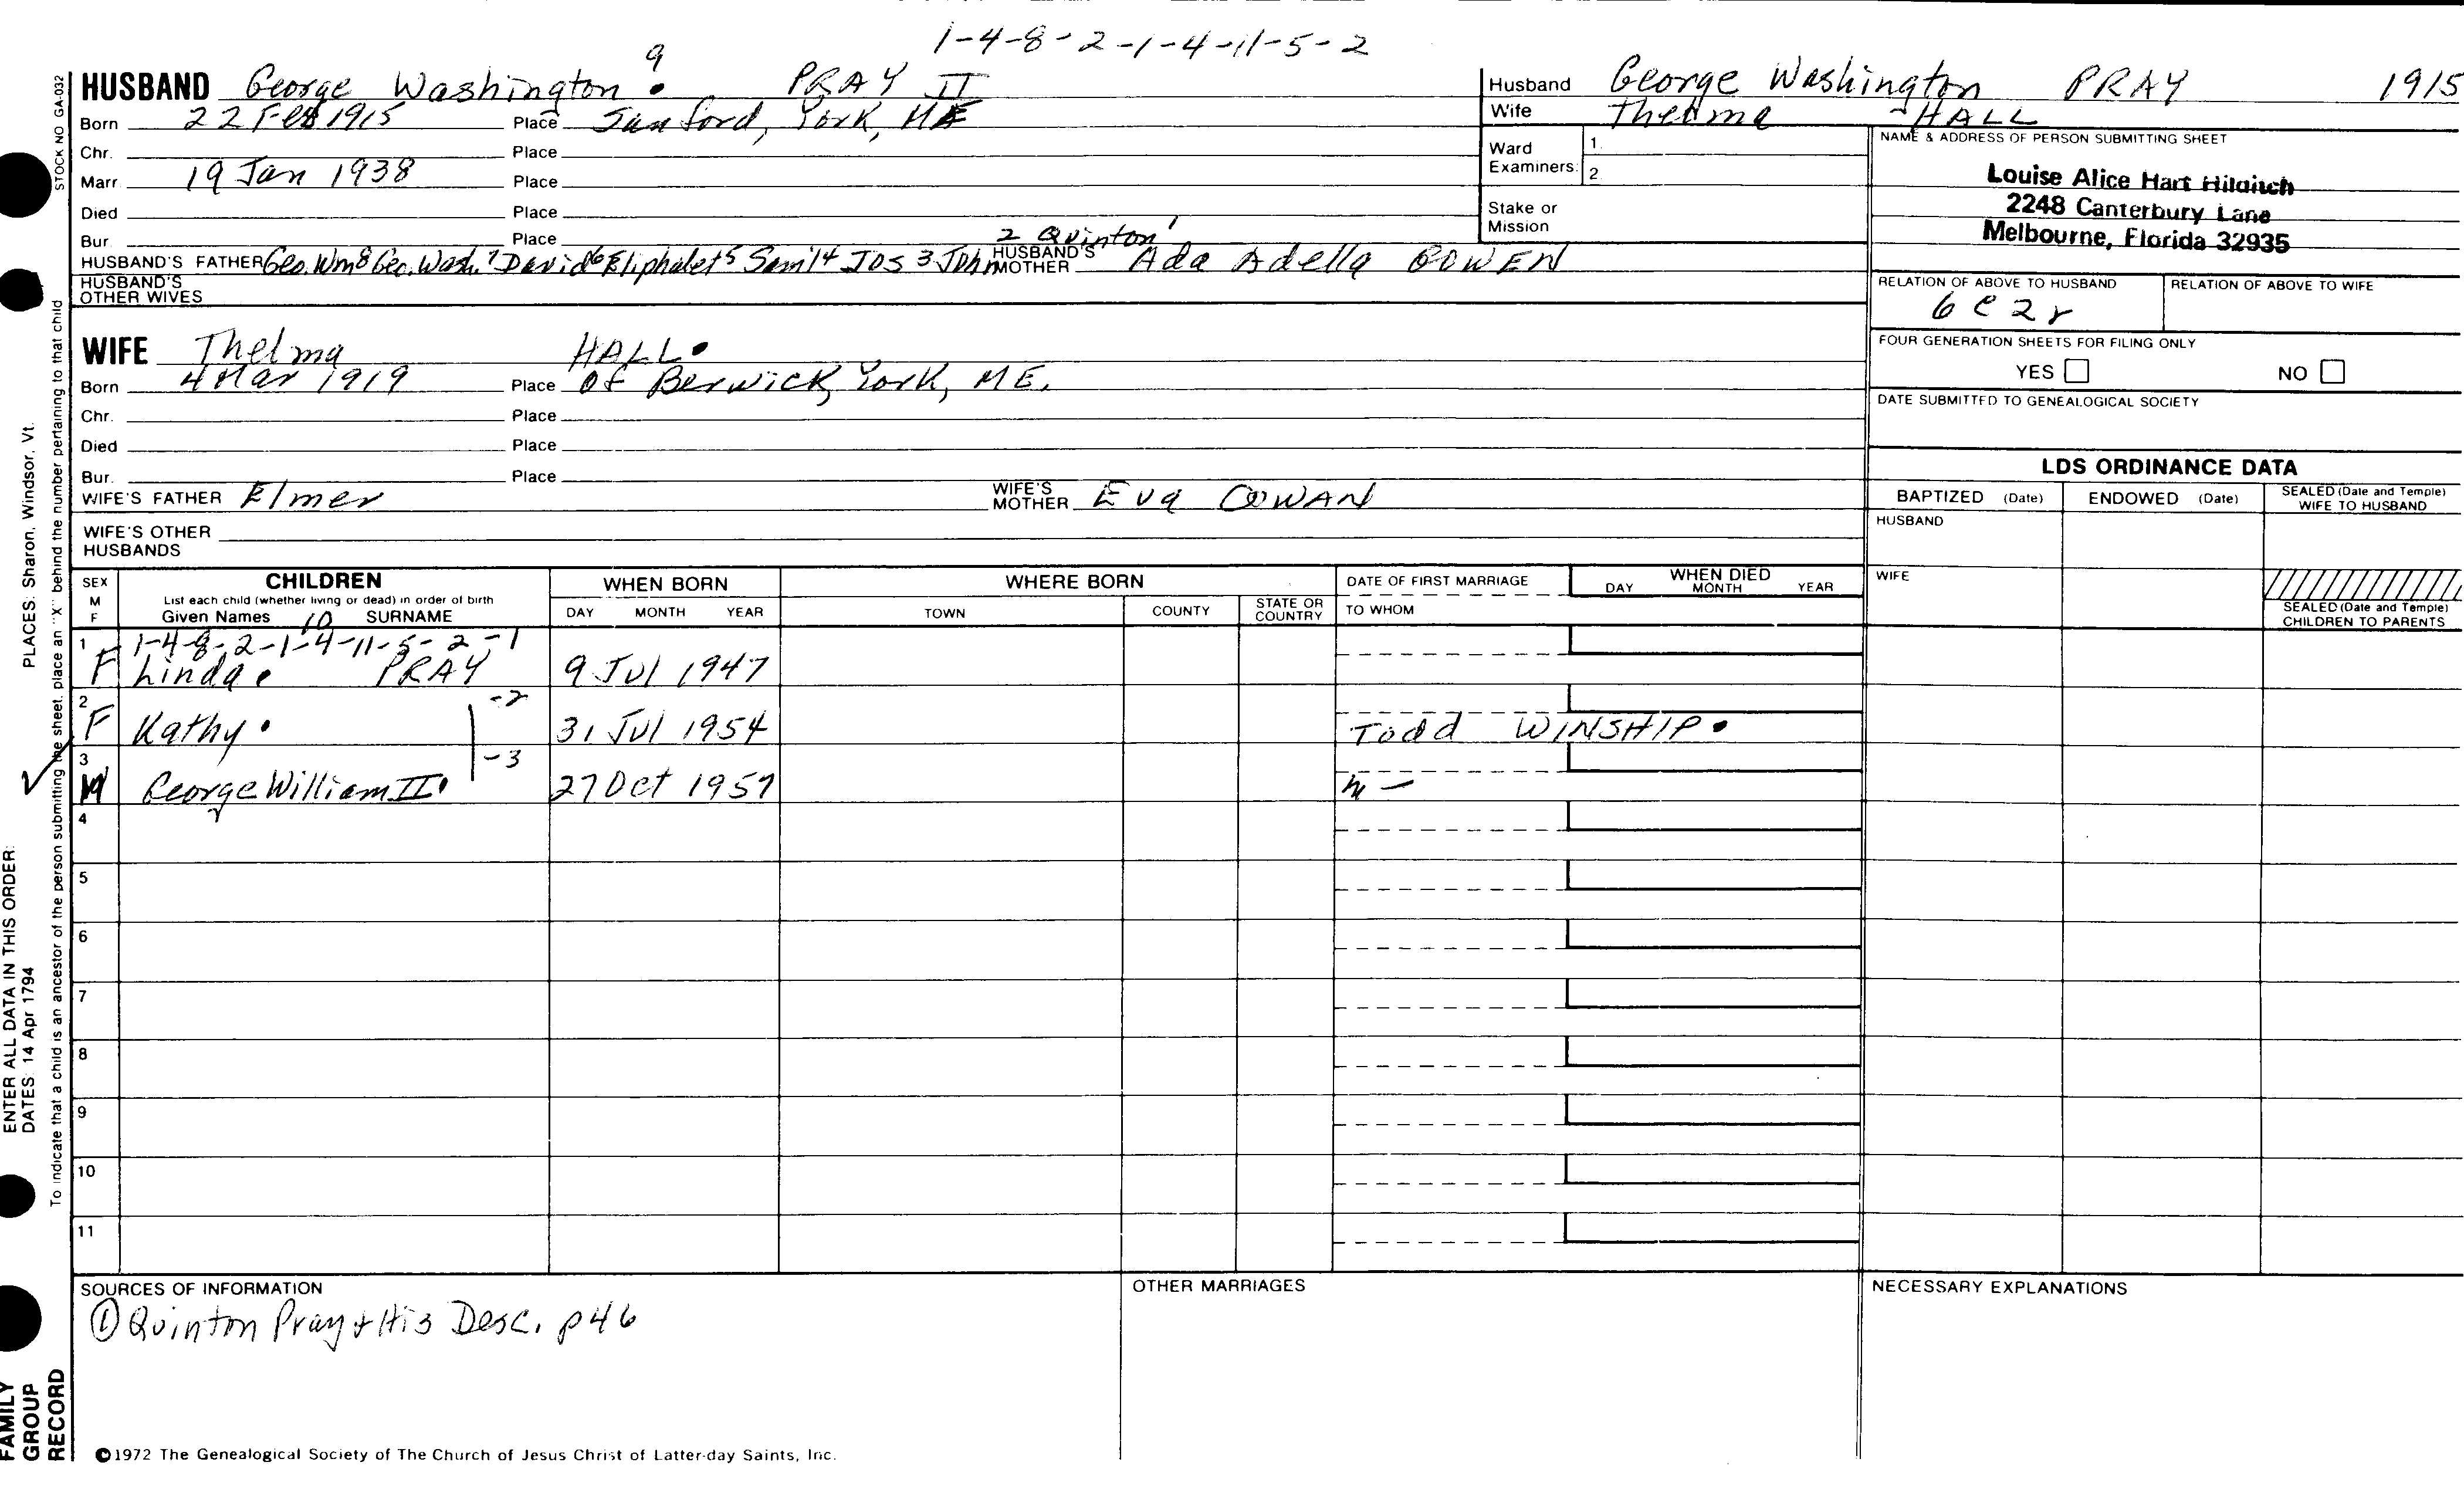 1-4-8-2-1-4-11-5-2
HUSBAND George Washington 9 PRAY II
Born 22 Feb 1915 Place Sanford, York, ME
Chr. Place
Marr. 19 Jan 1938 Place
Died Place
Bur. Place
HUSBAND'S FATHER Geo. Wm 8 Geo. Wash. 7 David 6 Eliphalet 5 Sam'l 4 Jos 3 John 2 Quinton 1 HUSBAND'S MOTHER Ada Adella BOWEN
HUSBAND'S OTHER WIVES
WIFE Thelma HALL
Born 4 Mar 1919 Place of Berwick, York, ME.
Chr. Place
Died Place
Bur. Place
WIFE'S FATHER Elmer WIFE'S MOTHER Eva COWAN
WIFE'S OTHER HUSBANDS
Husband George Washington PRAY 1915
Wife Thelma HALL
Ward Examiners: 1. 2.
Stake or Mission
NAME & ADDRESS OF PERSON SUBMITTING SHEET
Louise Alice Hart
2248 Canterbury Lane
Melbourne, Florida 32935
RELATION OF ABOVE TO HUSBAND RELATION OF ABOVE TO WIFE
6 c 2 r
FOUR GENERATION SHEETS FOR FILING ONLY
YES NO
DATE SUBMITTED TO GENEALOGICAL SOCIETY
LDS ORDINANCE DATA
BAPTIZED (Date) ENDOWED (Date) SEALED (Date and Temple) WIFE TO HUSBAND
HUSBAND
WIFE
SEALED (Date and Temple) CHILDREN TO PARENTS
SEX M F CHILDREN WHEN BORN WHERE BORN DATE OF FIRST MARRIAGE WHEN DIED
List each child (whether living or dead) in order of birth
Given Names 10 SURNAME DAY MONTH YEAR TOWN COUNTY STATE OR COUNTRY TO WHOM DAY MONTH YEAR
1 1-4-8-2-1-4-11-5-2-1
F Linda PRAY 9 Jul 1947
2 -2
F Kathy 31 Jul 1954 Todd WINSHIP
3 -3
M George William II 27 Oct 1957
4
5
6
7
8
9
10
11
SOURCES OF INFORMATION
① Quinton Pray & His Desc. p46
OTHER MARRIAGES
NECESSARY EXPLANATIONS
©1972 The Genealogical Society of The Church of Jesus Christ of Latter-day Saints, Inc.
STOCK NO GA-032
To indicate that a child is an ancestor of the person submitting the sheet, place an "X" behind the number pertaining to that child
PLACES: Sharon, Windsor, Vt.
ENTER ALL DATA IN THIS ORDER:
DATES: 14 Apr 1794
FAMILY
GROUP
RECORD